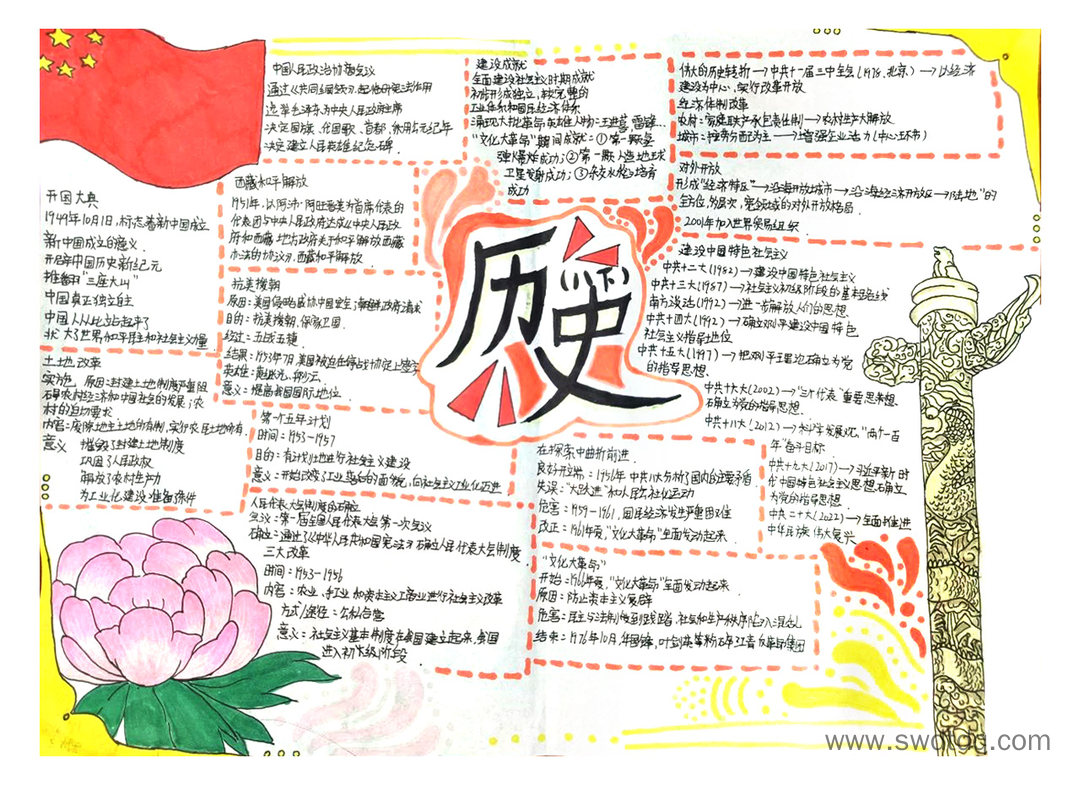 历史
(八下)
中国人民政治协商会议
通过《共同纲领》,起临时宪法作用
选举毛泽东为中央人民政府主席
决定国旗、代国歌、首都,采用公元纪年
决定建立人民英雄纪念碑.
开国大典
1949年10月1日,标志着新中国成立
新中国成立的意义.
开启中国历史新纪元
推翻了"三座大山"
中国真正独立自主
中国人从此站起来了
壮大了世界和平民主和社会主义力量
土地改革
实施 原因:封建土地制度严重阻
碍农村经济和中国社会的发展;农
村的迫切要求
内容:废除地主土地所有制,实行农民土地所有.
意义 摧毁了封建土地制度
巩固了人民政权
解放了农村生产力
为工业化建设准备条件
西藏和平解放
1951年,以阿沛·阿旺晋美为首席代表的
代表团与中央人民政府达成《中央人民政
府和西藏地方政府关于和平解放西藏
办法的协议》,西藏和平解放.
抗美援朝
原因:美国侵略威胁中国安全;朝鲜政府请求
目的:抗美援朝,保家卫国.
经过:五战五捷
结果:1953年7月,美国被迫在停战协定上签字
英雄:黄继光、邱少云.
意义:提高我国国际地位.
第一个五年计划
时间:1953-1957
目的:有计划地进行社会主义建设
意义:开始改变了工业落后的面貌,向社会主义工业化迈进.
人民代表大会制度的确立
会议:第一届全国人民代表大会第一次会议
确立:通过了《中华人民共和国宪法》,确立人民代表大会制度.
三大改革
时间:1953-1956
内容:农业、手工业和资本主义工商业进行社会主义改革
方式/途径:公私合营
意义:社会主义基本制度在我国建立起来,我国
进入初级阶段.
建设成就
全面建设社会主义时期成就
初步形成独立、较完整的
工业体系和国民经济体系
涌现大批革命英雄人物:王进喜,雷锋...
"文化大革命"期间成就:①第一颗氢
弹爆炸成功;②第一颗人造地球
卫星发射成功;③杂交水稻培育
成功
伟大的历史转折→中共十一届三中全会(1978,北京)→以经济
建设为中心,实行改革开放
经济体制改革
农村:家庭联产承包责任制→农村生产大解放
城市:按劳分配为主→增强企业活力(中心环节)
对外开放
形成"经济特区→沿海开放城市→沿海经济开放区→内地"的
全方位,多层次,宽领域的对外开放格局.
2001年加入世界贸易组织.
建设中国特色社会主义
中共十二大(1982)→建设中国特色社会主义
中共十三大(1987)→社会主义初级阶段的基本路线
南方谈话(1992)→进一步解放人们的思想.
中共十四大(1992)→确立邓小平建设中国特色
社会主义指导地位
中共十五大(1997)→把邓小平理论确立为党
的指导思想.
中共十六大(2002)→"三个代表"重要思想
确立为党的指导思想.
中共十八大(2012)→科学发展观,"两个一百
年"奋斗目标.
中共十九大(2017)→习近平新时
代中国特色社会主义思想确立
为党的指导思想
中共二十大(2022)→全面推进
中华民族伟大复兴
在探索中曲折前进.
良好开端:1956年中共八大分析了国内的主要矛盾
失误:"大跃进"和人民公社化运动
危害:1959-1961,国民经济发生严重困难
改正:1966年夏,"文化大革命"全面发动起来.
"文化大革命"
开始:1966年夏,"文化大革命"全面发动起来
原因:防止资本主义复辟
危害:民主与法制受到践踏,社会和生产秩序陷入混乱
结束:1976年10月,华国锋,叶剑英等粉碎江青反革命集团